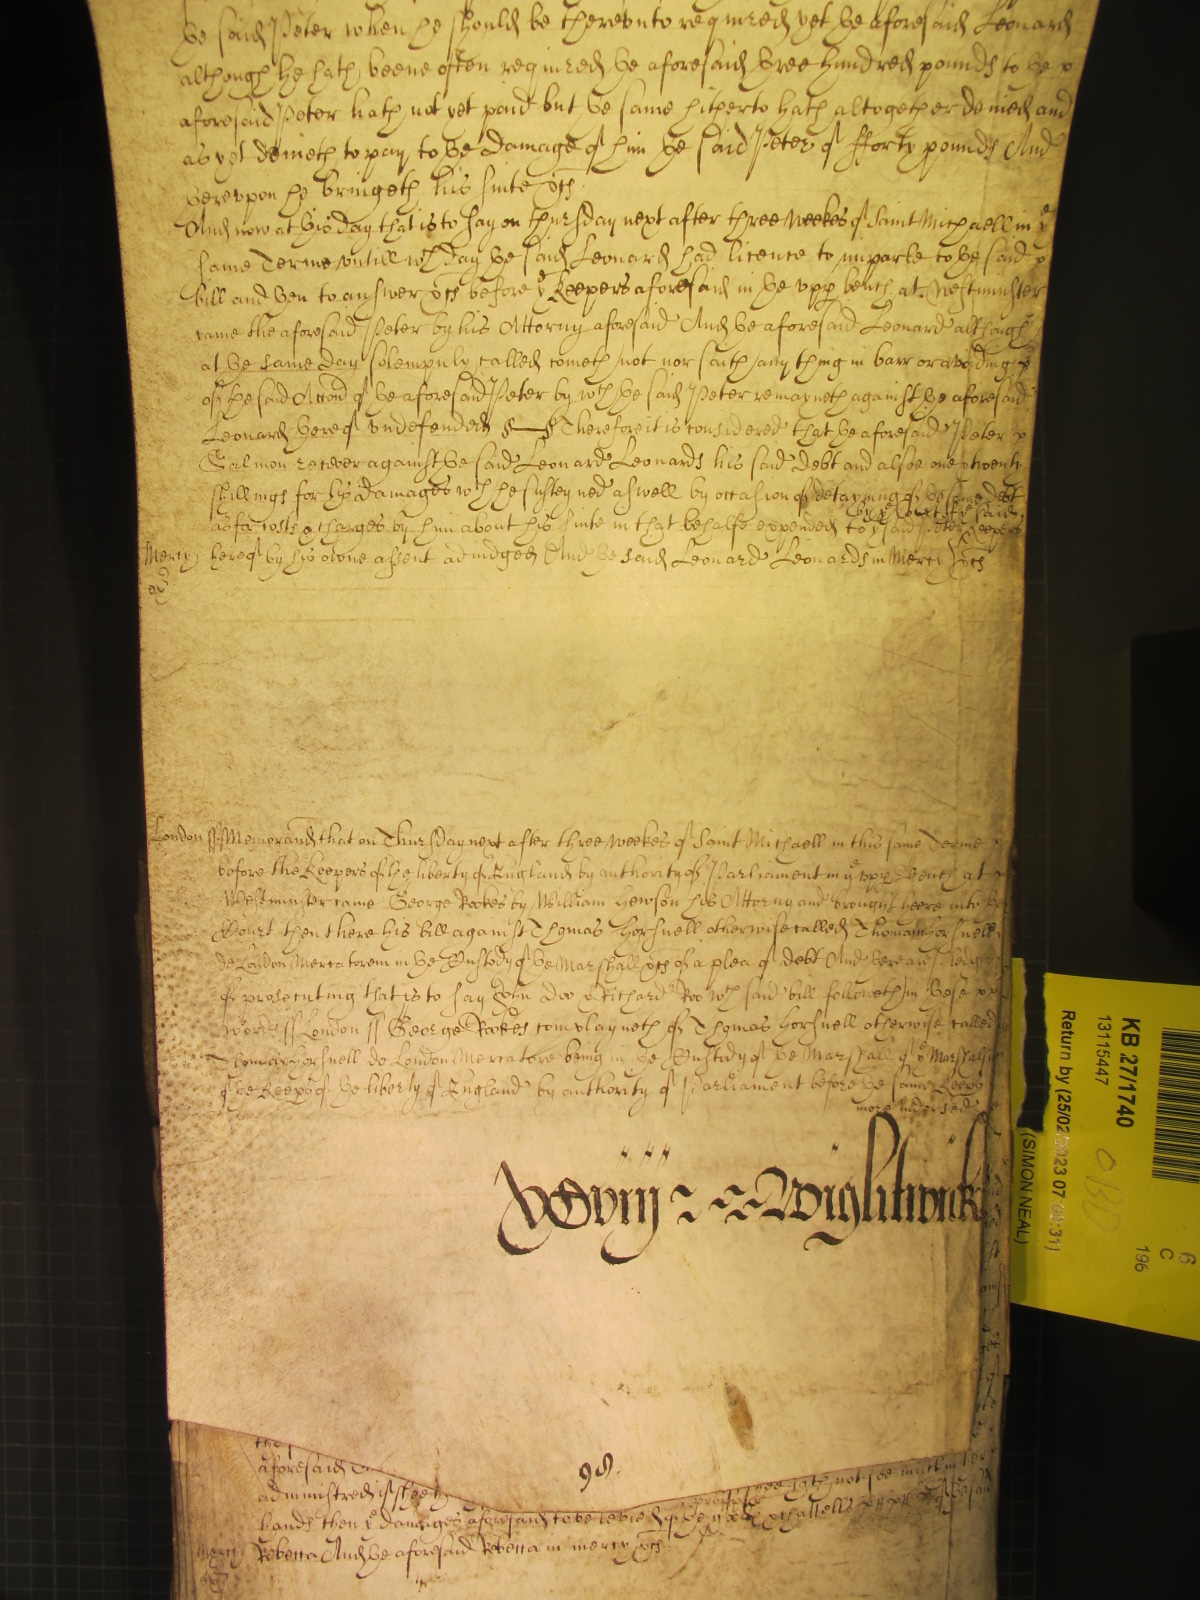 ye said Peter when he should be therevnto required yet ye aforesaid Leonard
although he hath beene often required ye aforesaid three hundred pounds to ye
aforesaid Peter hath not yet paid but ye same hitherto hath altogether denied and
as yet denieth to pay to ye damage of him ye said Peter of fforty pounds And
therevpon he bringeth his suite &c
And now at this day that is to say on thursday next after three weekes of Saint Michaell in ye
same Terme vntill wch day ye said Leonard had licence to imparle to ye said
bill and then to answer &c before ye Keepers aforesaid in ye vpp bench at Westminster
came the aforesaid Peter by his Attorny aforesaid And ye aforesaid Leonard although
at ye same day solempnly called cometh not nor saith any thing in barr or avoiding
of the said Accon of ye aforesaid Peter by wch ye said Peter remayneth against ye aforesaid
Leonard thereof vndefended Therefore it is considered that ye aforesaid Peter
Salmon recover against ye said Leonard Leonards his said debt and alsoe one & twenty
shillings for his damages wch he susteyned aswell by occasion of detayning of ye same debt
as for costs & charges by him about his suite in that behalfe expended to ye said Peter
by ye Court of ye said Keepers
Mercy hereof by his owne assent adiudged And ye said Leonard Leonards in Mercy &c
London ss Memorand that on Thursday next after three weekes of Saint Michaell in this same Terme
before the Keepers of the liberty of England by authority of Parliament in ye vpp Bench at
Westminster came George Rookes by William Hewson his Attorny and brought heere into ye
Court then there his bill against Thomas Horsnell otherwise called Thomam Horsnell
de London Mercatorem in ye Custody of ye Marshall &c of a plea of debt And there are pledges
of prosecuting that is to say John Doo & Richard Roo wch said bill followeth in these
words ss London ss George Rookes complayneth of Thomas Horsnell otherwise called
Thomas Horsnell de London Mercatore being in ye Custody of ye Marshall of ye Marshalsie
of ye Keeps of ye liberty of England by authority of Parliament before ye same Keeps
more indorsed
Wightwick
98
the
aforesaid
administred if
hands then ye damages aforesaid to be levied of ye
Mercy Rebecca And ye aforesaid Rebecca in mercy &c
KB 27/1740
13115447
Return by (25/02/2023 07:
(SIMON NEAL)
6
C
196